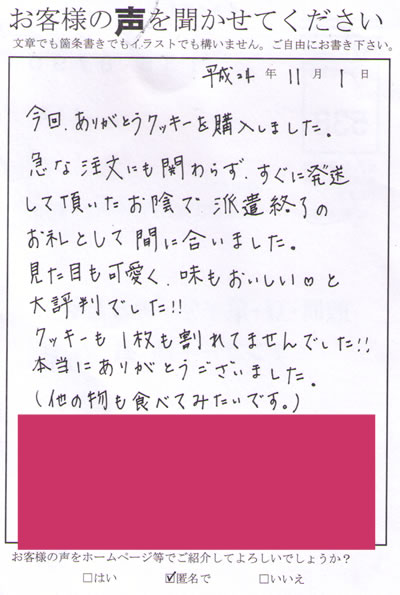 お客様の声を聞かせてください
文章でも箇条書きでもイラストでも構いません。ご自由にお書き下さい。
平成24年 11月 1日
今回、ありがとうクッキーを購入しました。
急な注文にも関わらず、すぐに発送
して頂いたお陰で、派遣終了の
お礼として間に合いました。
見た目も可愛く、味もおいしい♡と
大評判でした!!
クッキーも1枚も割れてませんでした!!
本当にありがとうございました。
(他の物も食べてみたいです。)
お客様の声をホームページ等でご紹介してよろしいでしょうか?
□はい ☑匿名で □いいえ